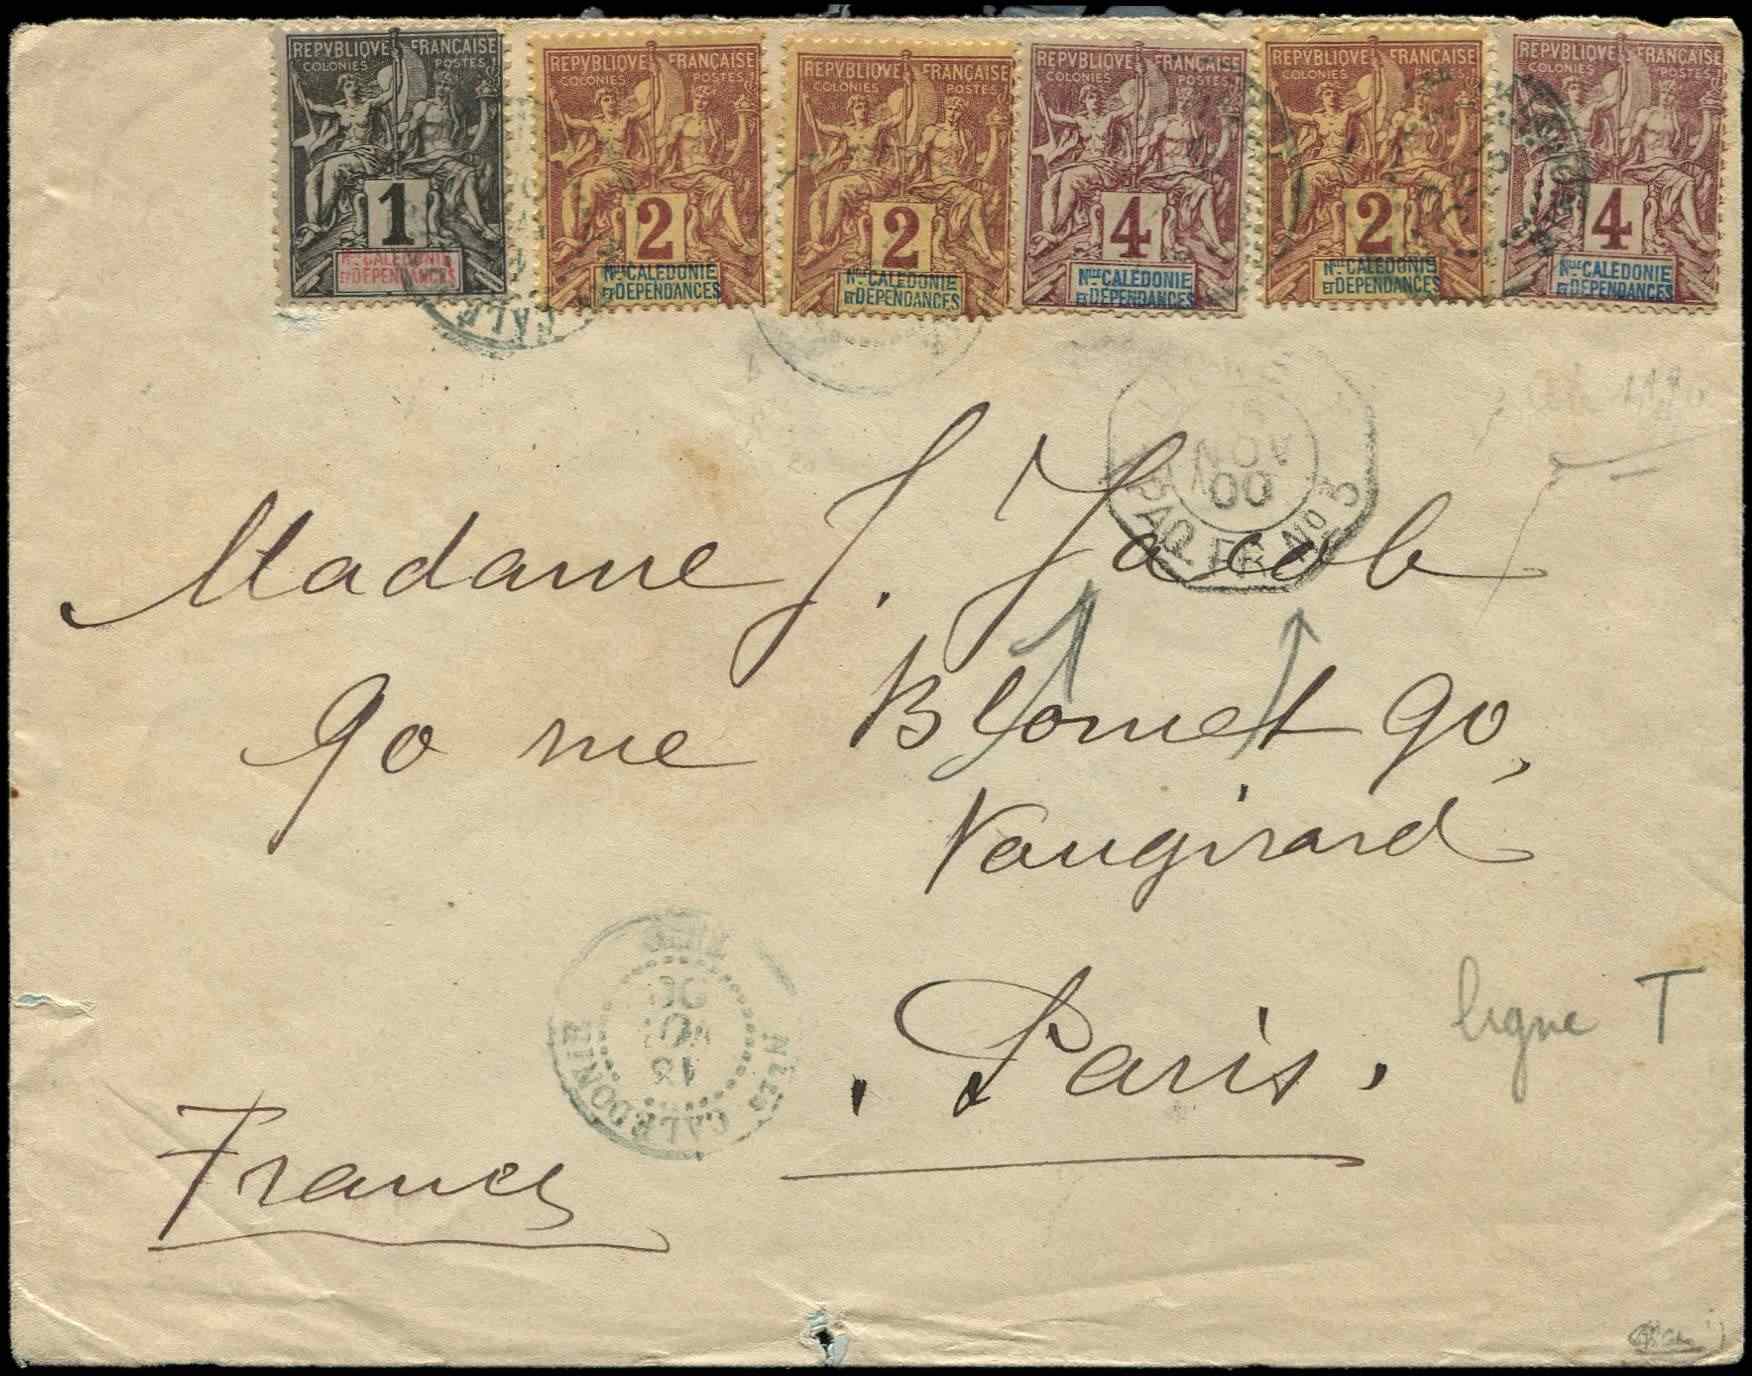 REPVBLIQVE FRANÇAISE
COLONIES POSTES
1
Nlle CALEDONIE
ET DEPENDANCES
REPVBLIQVE FRANÇAISE
COLONIES POSTES
2
Nlle CALEDONIE
ET DEPENDANCES
REPVBLIQVE FRANÇAISE
COLONIES POSTES
2
Nlle CALEDONIE
ET DEPENDANCES
REPVBLIQVE FRANÇAISE
COLONIES POSTES
4
Nlle CALEDONIE
ET DEPENDANCES
REPVBLIQVE FRANÇAISE
COLONIES POSTES
2
Nlle CALEDONIE
ET DEPENDANCES
REPVBLIQVE FRANÇAISE
COLONIES POSTES
4
Nlle CALEDONIE
ET DEPENDANCES
CALE
NOV
00
PAQ. FR. No 3
Madame J. Jacob
90 rue Blomet 90,
Vaugirard
Paris.
ligne T
France
13
Nlle CALEDONIE